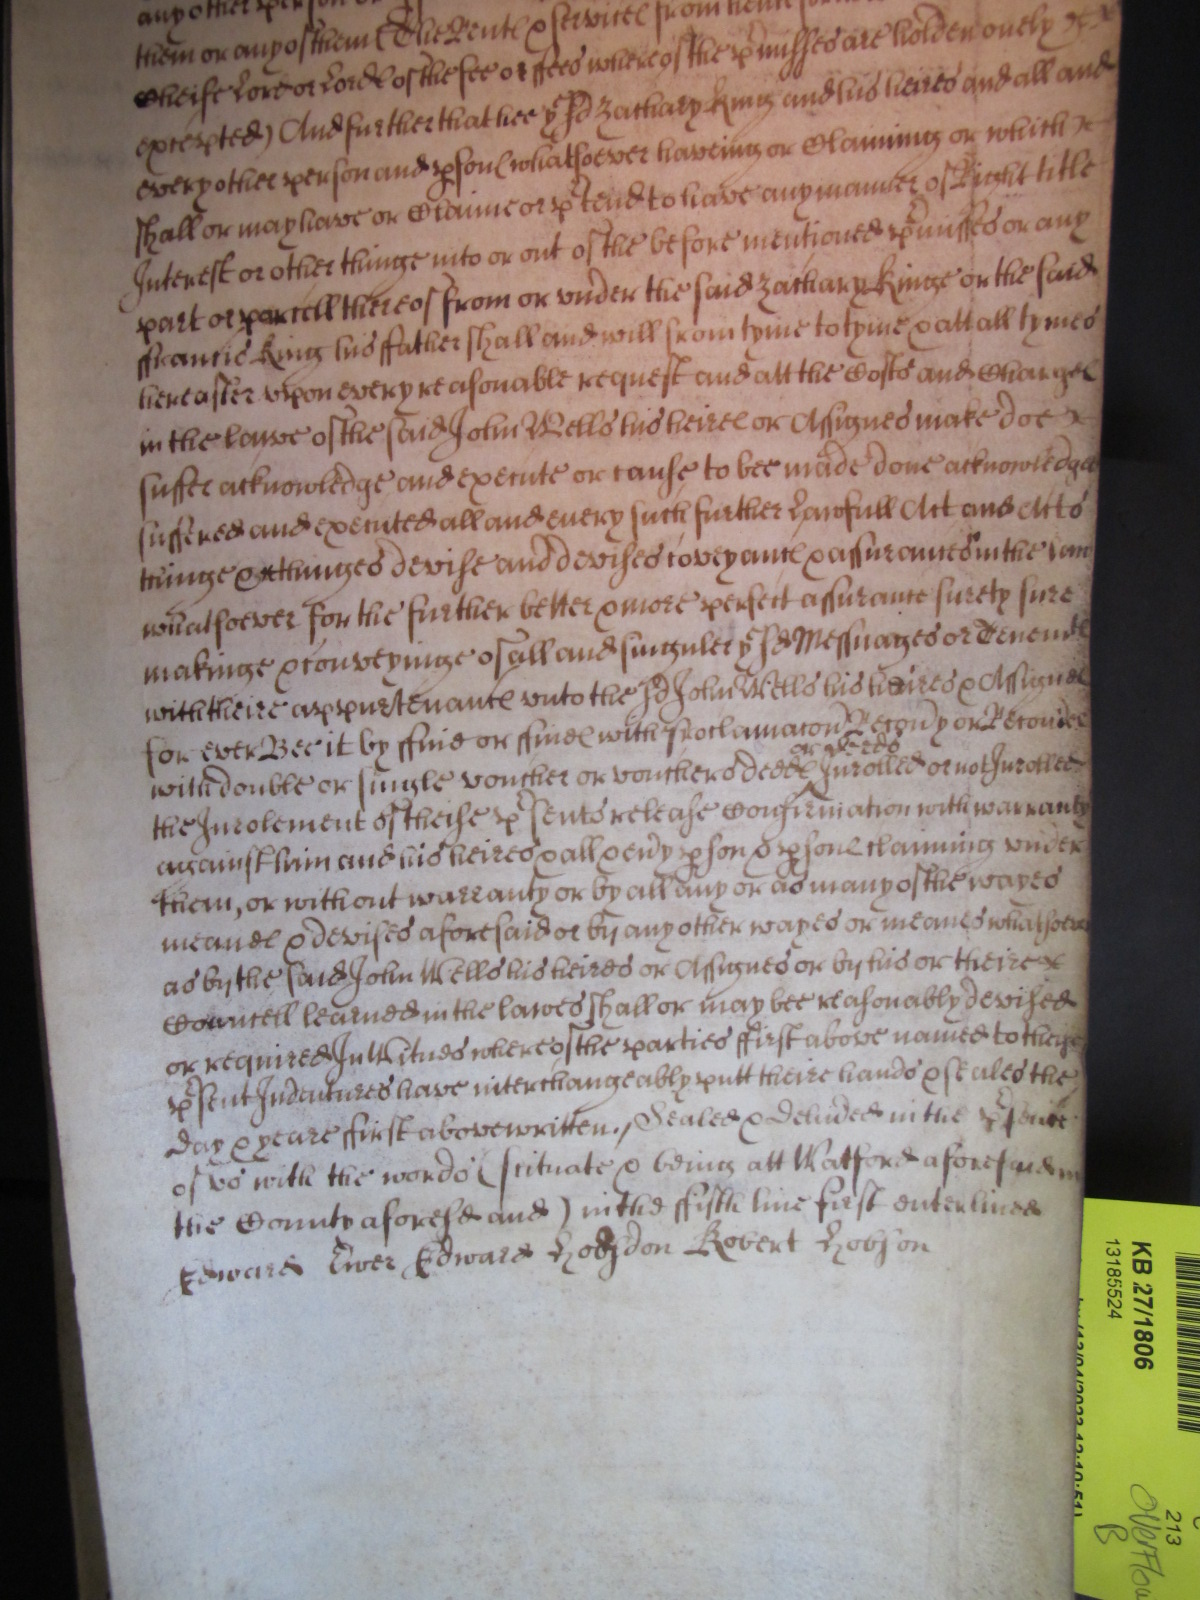 any other person or
them or any of them (The Rent & service from hence
cheife Lord or Lords of the fee or ffees whereof the pmisses are holden onely &
excepted) And further that hee ye sd Zachary King and his heires and all and
every other person and psons whatsoever haveing or Claiming or which &
shall or may have or Claime or ptend to have any manner of Right title
Interest or other thinge into or out of the before mentioned pmisses or any
part or parcell thereof from or vnder the said Zachary Kinge or the said
ffrancis King his ffather shall and will from tyme to tyme & att all tymes
hereafter vpon every reasonable request and att the Costs and Charges
in the lawe of the said John Wells his heires or Assignes make doe &
suffer acknowledge and execute or cause to bee made done acknowledged
suffered and executed all and every such further Lawfull Act and Acts
thinge & thinges devise and devises coveyances & assurances in the law
whatsoever for the further better & more perfect assurance surety sure
makinge & conveyinge of all and singuler ye sd Messuages or Tenemts
with theire appurtenances vnto the sd John Wells his heires & Assignes
for ever Bee it by ffine or ffines with proclamacon Recovy or Recoveries
with double or single voucher or vouchers deede or deeds Inrolled or not Inrolled
the Inrolement of theise psents release Confirmation with warranty
against him and his heires & all & evy pson & psons claiming vnder
them, or without warranty or by all any or as many of the wayes
meanes & devises aforesaid or by any other wayes or meanes whatsoever
as by the said John Wells his heires or Assignes or by his or theire &
Councell learned in the lawes shall or may bee reasonably devised
or required In Witnes whereof the parties ffirst above named to theise
psent Indentures have interchangeably putt theire hands & seales the
day & yeare ffirst abovewritten./ Sealed & delived in the psence
of vs with the words (scituate & being att Watford aforesaid in
the County aforesd and) in the ffifth line first enterlined
Edward Ewer Edward Hodsdon Robert Hobson
KB 27/1806
13185524
213
Overflow
B